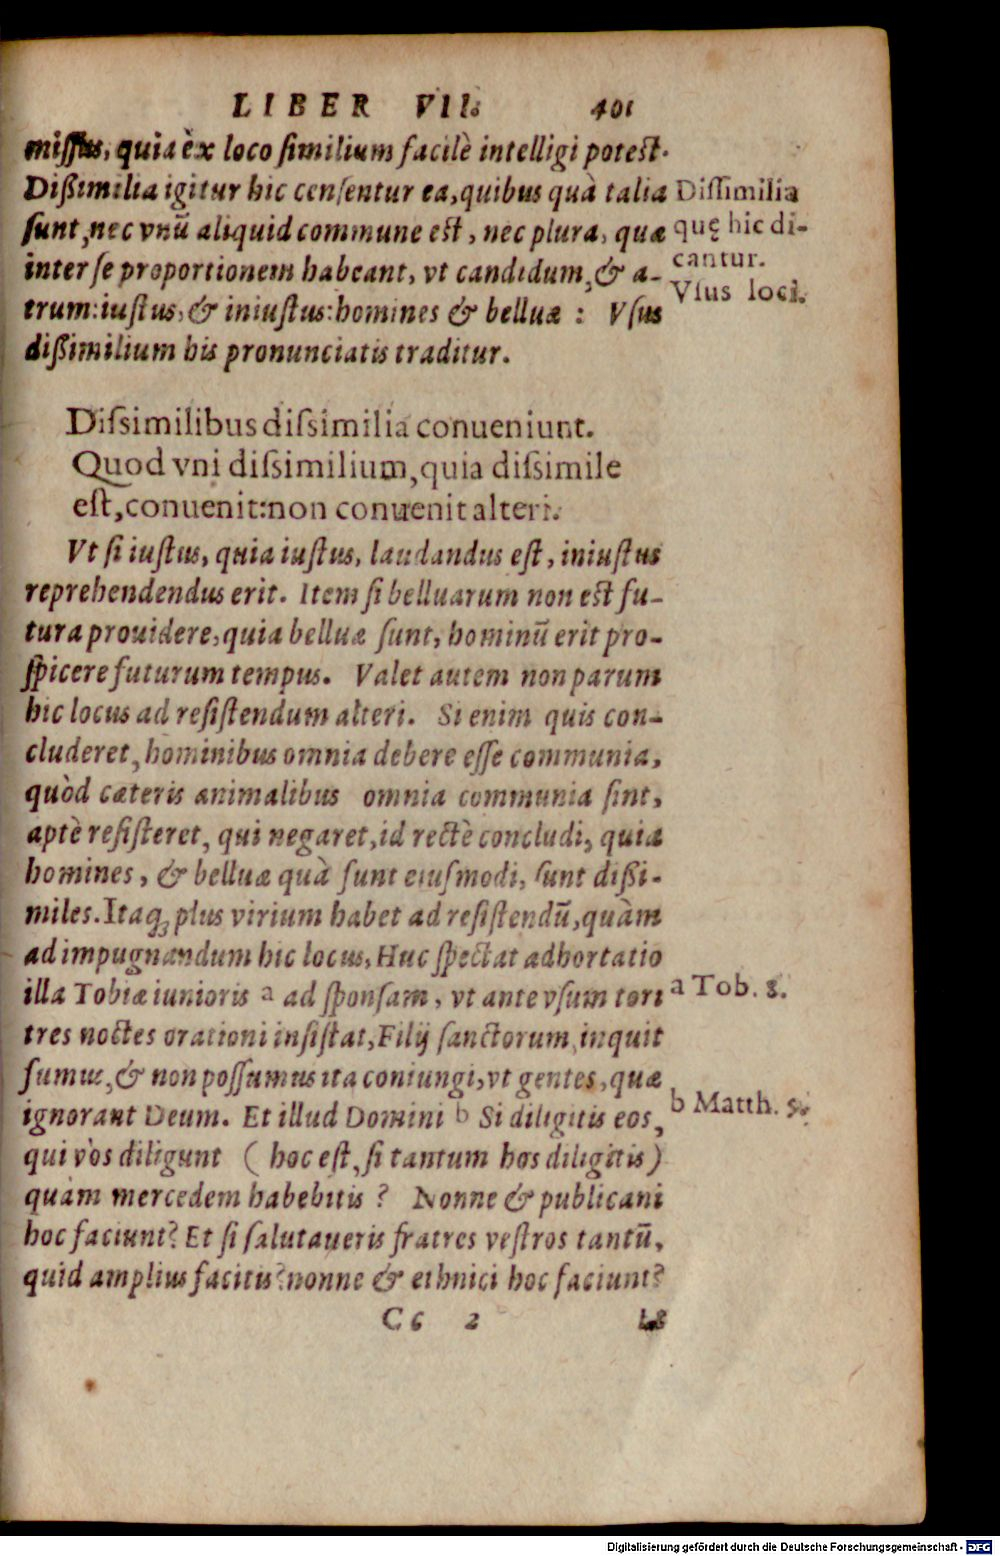 LIBER VII. 401
missus, quia èx loco similium facilè intelligi potest.
Dißimilia igitur hic censentur ea, quibus quà talia
sunt, nec vnũ aliquid commune est, nec plura, quæ
inter se proportionem habeant, vt candidum, & a-
trum: iustus, & iniustus: homines & belluæ : Vsus
dißimilium his pronunciatis traditur.
Dissimilia
quę hic di-
cantur.
Vsus loci.
Dissimilibus dissimilia conueniunt.
Quod vni dissimilium, quia dissimile
est, conuenit: non conuenit alteri.
Vt si iustus, quia iustus, laudandus est, iniustus
reprehendendus erit. Item si belluarum non est fu-
tura prouidere, quia belluæ sunt, hominũ erit pro-
spicere futurum tempus. Valet autem non parum
hic locus ad resistendum alteri. Si enim quis con-
cluderet, hominibus omnia debere esse communia,
quòd cæteris animalibus omnia communia sint,
aptè resisteret, qui negaret, id rectè concludi, quia
homines, & belluæ quà sunt eiusmodi, sunt dißi-
miles. Itaq; plus virium habet ad resistendũ, quàm
ad impugnandum hic locus, Huc spectat adhortatio
illa Tobiæ iunioris a ad sponsam, vt ante vsum tori
tres noctes orationi insistat, Filij sanctorum, inquit
sumus, & non possumus ita coniungi, vt gentes, quæ
ignorant Deum. Et illud Domini b Si diligitis eos,
qui vòs diligunt ( hoc est, si tantum hos diligitis)
quam mercedem habebitis ? Nonne & publicani
hoc faciunt? Et si salutaueris fratres vestros tantũ,
quid amplius facitis? nonne & ethnici hoc faciunt?
a Tob. 8.
b Matth. 5.
Cc 2
Digitalisierung gefördert durch die Deutsche Forschungsgemeinschaft - DFG